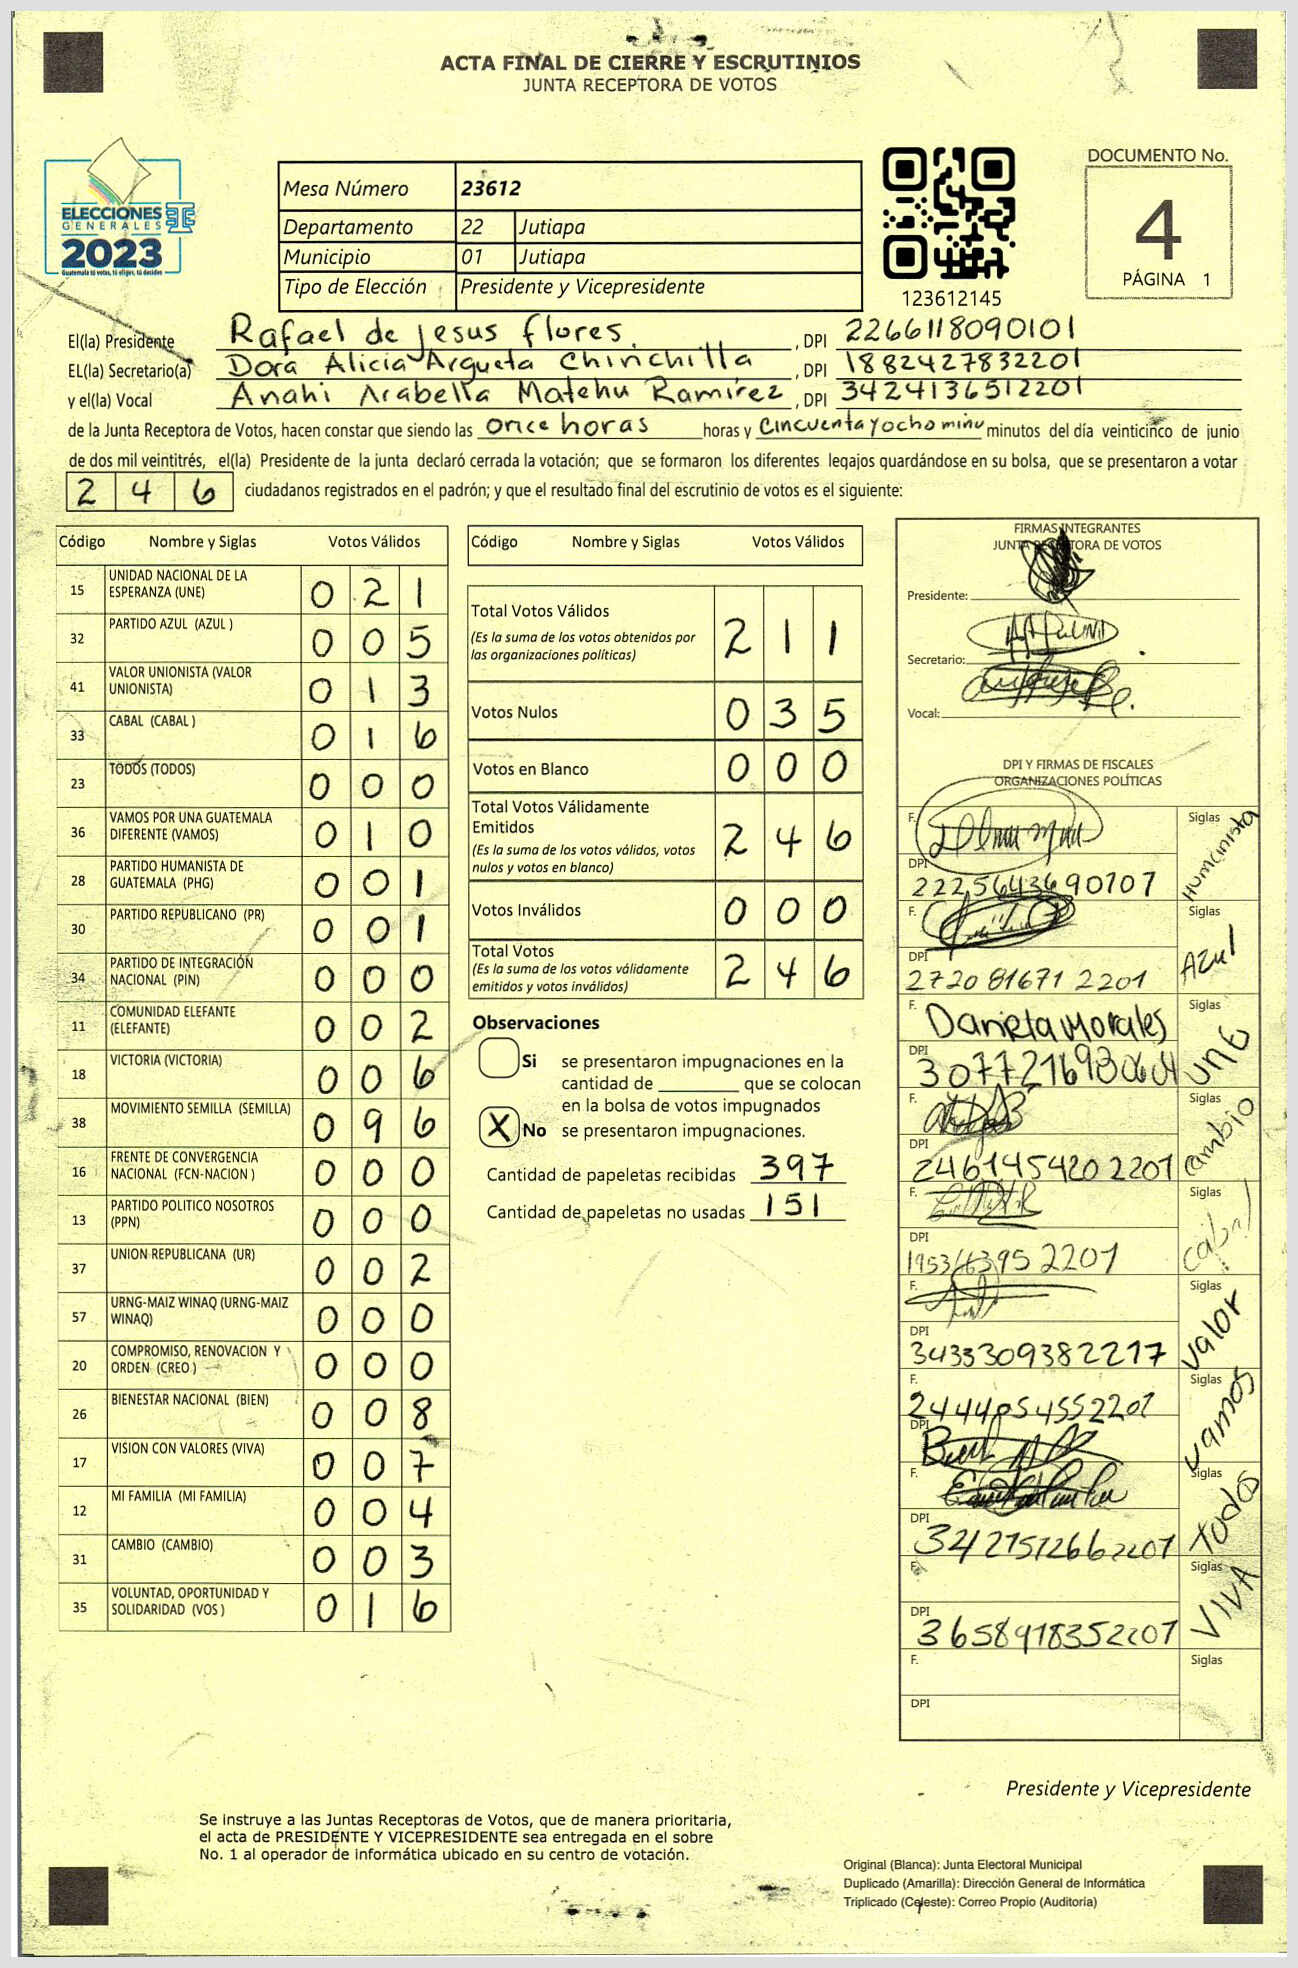 ACTA FINAL DE CIERRE Y ESCRUTINIOS
JUNTA RECEPTORA DE VOTOS
ELECCIONES
GENERALES
2023
Guatemala tú votas, tú eliges, tú decides
Mesa Número 23612
Departamento 22 Jutiapa
Municipio 01 Jutiapa
Tipo de Elección Presidente y Vicepresidente
123612145
DOCUMENTO No.
4
PÁGINA 1
El(la) Presidente Rafael de Jesus flores. , DPI 2266118090101
EL(la) Secretario(a) Dora Alicia Argueta Chinchilla , DPI 1882427832201
y el(la) Vocal Anahi Arabella Matehu Ramírez , DPI 3424136512201
de la Junta Receptora de Votos, hacen constar que siendo las once horas horas y Cincuenta y ocho minu minutos del día veinticinco de junio
de dos mil veintitrés, el(la) Presidente de la junta declaró cerrada la votación; que se formaron los diferentes legajos guardándose en su bolsa, que se presentaron a votar
2 4 6 ciudadanos registrados en el padrón; y que el resultado final del escrutinio de votos es el siguiente:
Código Nombre y Siglas Votos Válidos
15 UNIDAD NACIONAL DE LA ESPERANZA (UNE) 0 2 1
32 PARTIDO AZUL (AZUL ) 0 0 5
41 VALOR UNIONISTA (VALOR UNIONISTA) 0 1 3
33 CABAL (CABAL ) 0 1 6
23 TODOS (TODOS) 0 0 0
36 VAMOS POR UNA GUATEMALA DIFERENTE (VAMOS) 0 1 0
28 PARTIDO HUMANISTA DE GUATEMALA (PHG) 0 0 1
30 PARTIDO REPUBLICANO (PR) 0 0 1
34 PARTIDO DE INTEGRACIÓN NACIONAL (PIN) 0 0 0
11 COMUNIDAD ELEFANTE (ELEFANTE) 0 0 2
18 VICTORIA (VICTORIA) 0 0 6
38 MOVIMIENTO SEMILLA (SEMILLA) 0 9 6
16 FRENTE DE CONVERGENCIA NACIONAL (FCN-NACION ) 0 0 0
13 PARTIDO POLITICO NOSOTROS (PPN) 0 0 0
37 UNION REPUBLICANA (UR) 0 0 2
57 URNG-MAIZ WINAQ (URNG-MAIZ WINAQ) 0 0 0
20 COMPROMISO, RENOVACION Y ORDEN (CREO ) 0 0 0
26 BIENESTAR NACIONAL (BIEN) 0 0 8
17 VISION CON VALORES (VIVA) 0 0 7
12 MI FAMILIA (MI FAMILIA) 0 0 4
31 CAMBIO (CAMBIO) 0 0 3
35 VOLUNTAD, OPORTUNIDAD Y SOLIDARIDAD (VOS ) 0 1 6
Código Nombre y Siglas Votos Válidos
Total Votos Válidos 2 1 1
(Es la suma de los votos obtenidos por
las organizaciones políticas)
Votos Nulos 0 3 5
Votos en Blanco 0 0 0
Total Votos Válidamente
Emitidos 2 4 6
(Es la suma de los votos válidos, votos
nulos y votos en blanco)
Votos Inválidos 0 0 0
Total Votos 2 4 6
(Es la suma de los votos válidamente
emitidos y votos inválidos)
Observaciones
Si se presentaron impugnaciones en la
cantidad de ________ que se colocan
en la bolsa de votos impugnados
X No se presentaron impugnaciones.
Cantidad de papeletas recibidas 397
Cantidad de papeletas no usadas 151
FIRMAS INTEGRANTES
JUNTA RECEPTORA DE VOTOS
Presidente:
Secretario:
Vocal:
DPI Y FIRMAS DE FISCALES
ORGANIZACIONES POLÍTICAS
F. Siglas Humanista
DPI 2225643690707
F. Siglas Azul
DPI 2720816712201
F. Daniela Morales Siglas UNE
DPI
F. Siglas cambio
DPI 2461454202201
F. Siglas cabal
DPI
F. Siglas Valor
DPI 3433309382217
F. Siglas Vamos
2444054552201
DPI
F. Siglas Todos
DPI 3421512662201
F. Siglas VIVA
DPI 3658918352201
F. Siglas
DPI
Presidente y Vicepresidente
Se instruye a las Juntas Receptoras de Votos, que de manera prioritaria,
el acta de PRESIDENTE Y VICEPRESIDENTE sea entregada en el sobre
No. 1 al operador de informática ubicado en su centro de votación.
Original (Blanca): Junta Electoral Municipal
Duplicado (Amarilla): Dirección General de Informática
Triplicado (Celeste): Correo Propio (Auditoría)